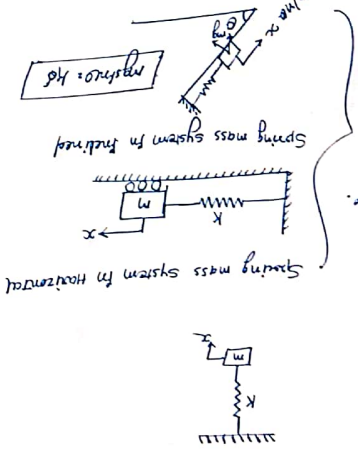 K
m
x
Spring mass system In Horizontal
x
K
m
Spring mass system In Inclined
mgsinθ = kδ
x
mg
θ